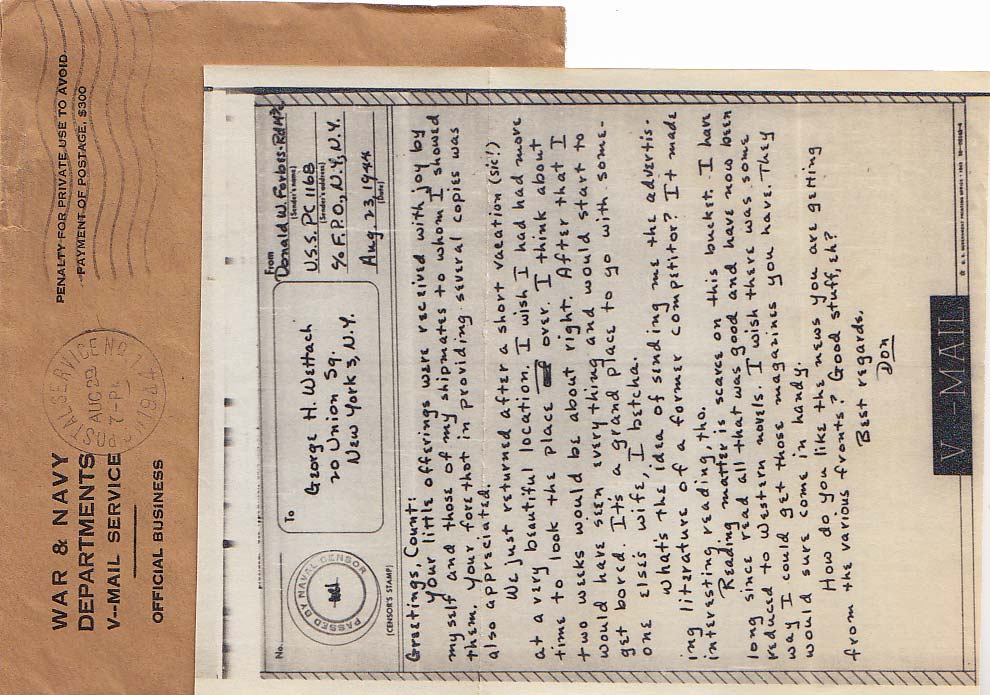 WAR & NAVY
DEPARTMENTS
V-MAIL SERVICE
OFFICIAL BUSINESS
PENALTY FOR PRIVATE USE TO AVOID
PAYMENT OF POSTAGE, $300
POSTAL SERVICE NO.
AUG 29
7-PM
1944
No.
PASSED BY NAVAL CENSOR
(CENSOR'S STAMP)
To
George H. Wettach
20 Union Sq.
New York 3, N.Y.
From
Donald W. Forbes-
(Sender's name)
U.S.S. PC 1168
(Sender's address)
℅ F.P.O., N.Y., N.Y.
Aug. 23, 1944
(Date)
Greetings, Count:
Your little offerings were received with joy by
myself and those of my shipmates to whom I showed
them. Your forethot in providing several copies was
also appreciated.
We just returned after a short vacation (sic!)
at a very beautiful location. I wish I had had more
time to look the place over. I think about
two weeks would be about right. After that I
would have seen everything and would start to
get bored. It's a grand place to go with some-
one else's wife, I betcha.
What's the idea of sending me the advertis-
ing literature of a former competitor? It made
interesting reading, tho.
Reading matter is scarce on this bucket. I have
long since read all that was good and have now been
reduced to Western novels. I wish there was some
way I could get those magazines you have. They
would sure come in handy.
How do you like the news you are getting
from the various fronts? Good stuff, eh?
Best regards,
Don
V-MAIL